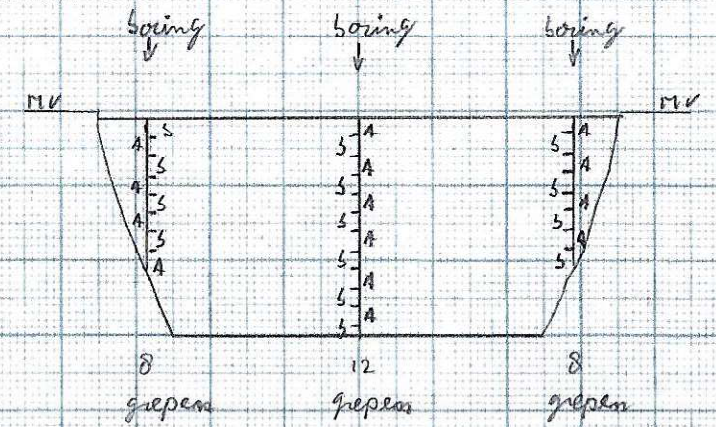 boring boring boring
MV MV
S A A
A S S
S A A
A S S
S A A
A S S
S A A
A S S
A
S
A
S
8 12 8
grepen grepen grepen